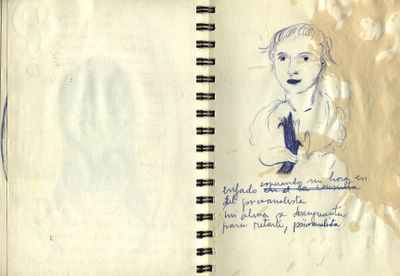 enfado esperando mi hora en
psicoanalista
mi alma se
para retarte, psicoanalista